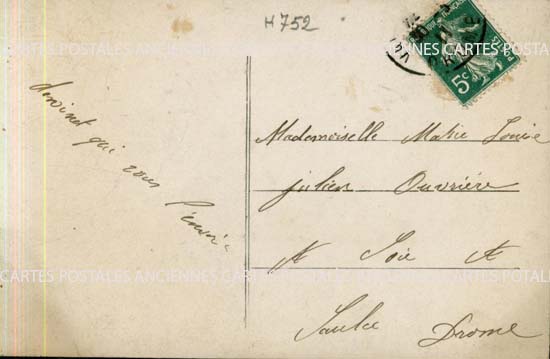 H752
POSTES
5c
qui vous l'envoie
Mademoiselle Marie Louise
Julien Ouvrière
A Soie A
Saulce Drome
CARTES POSTALES ANCIENNES CARTES POSTALES ANCIENNES
CARTES POSTALES ANCIENNES CARTES POSTALES ANCIENNES